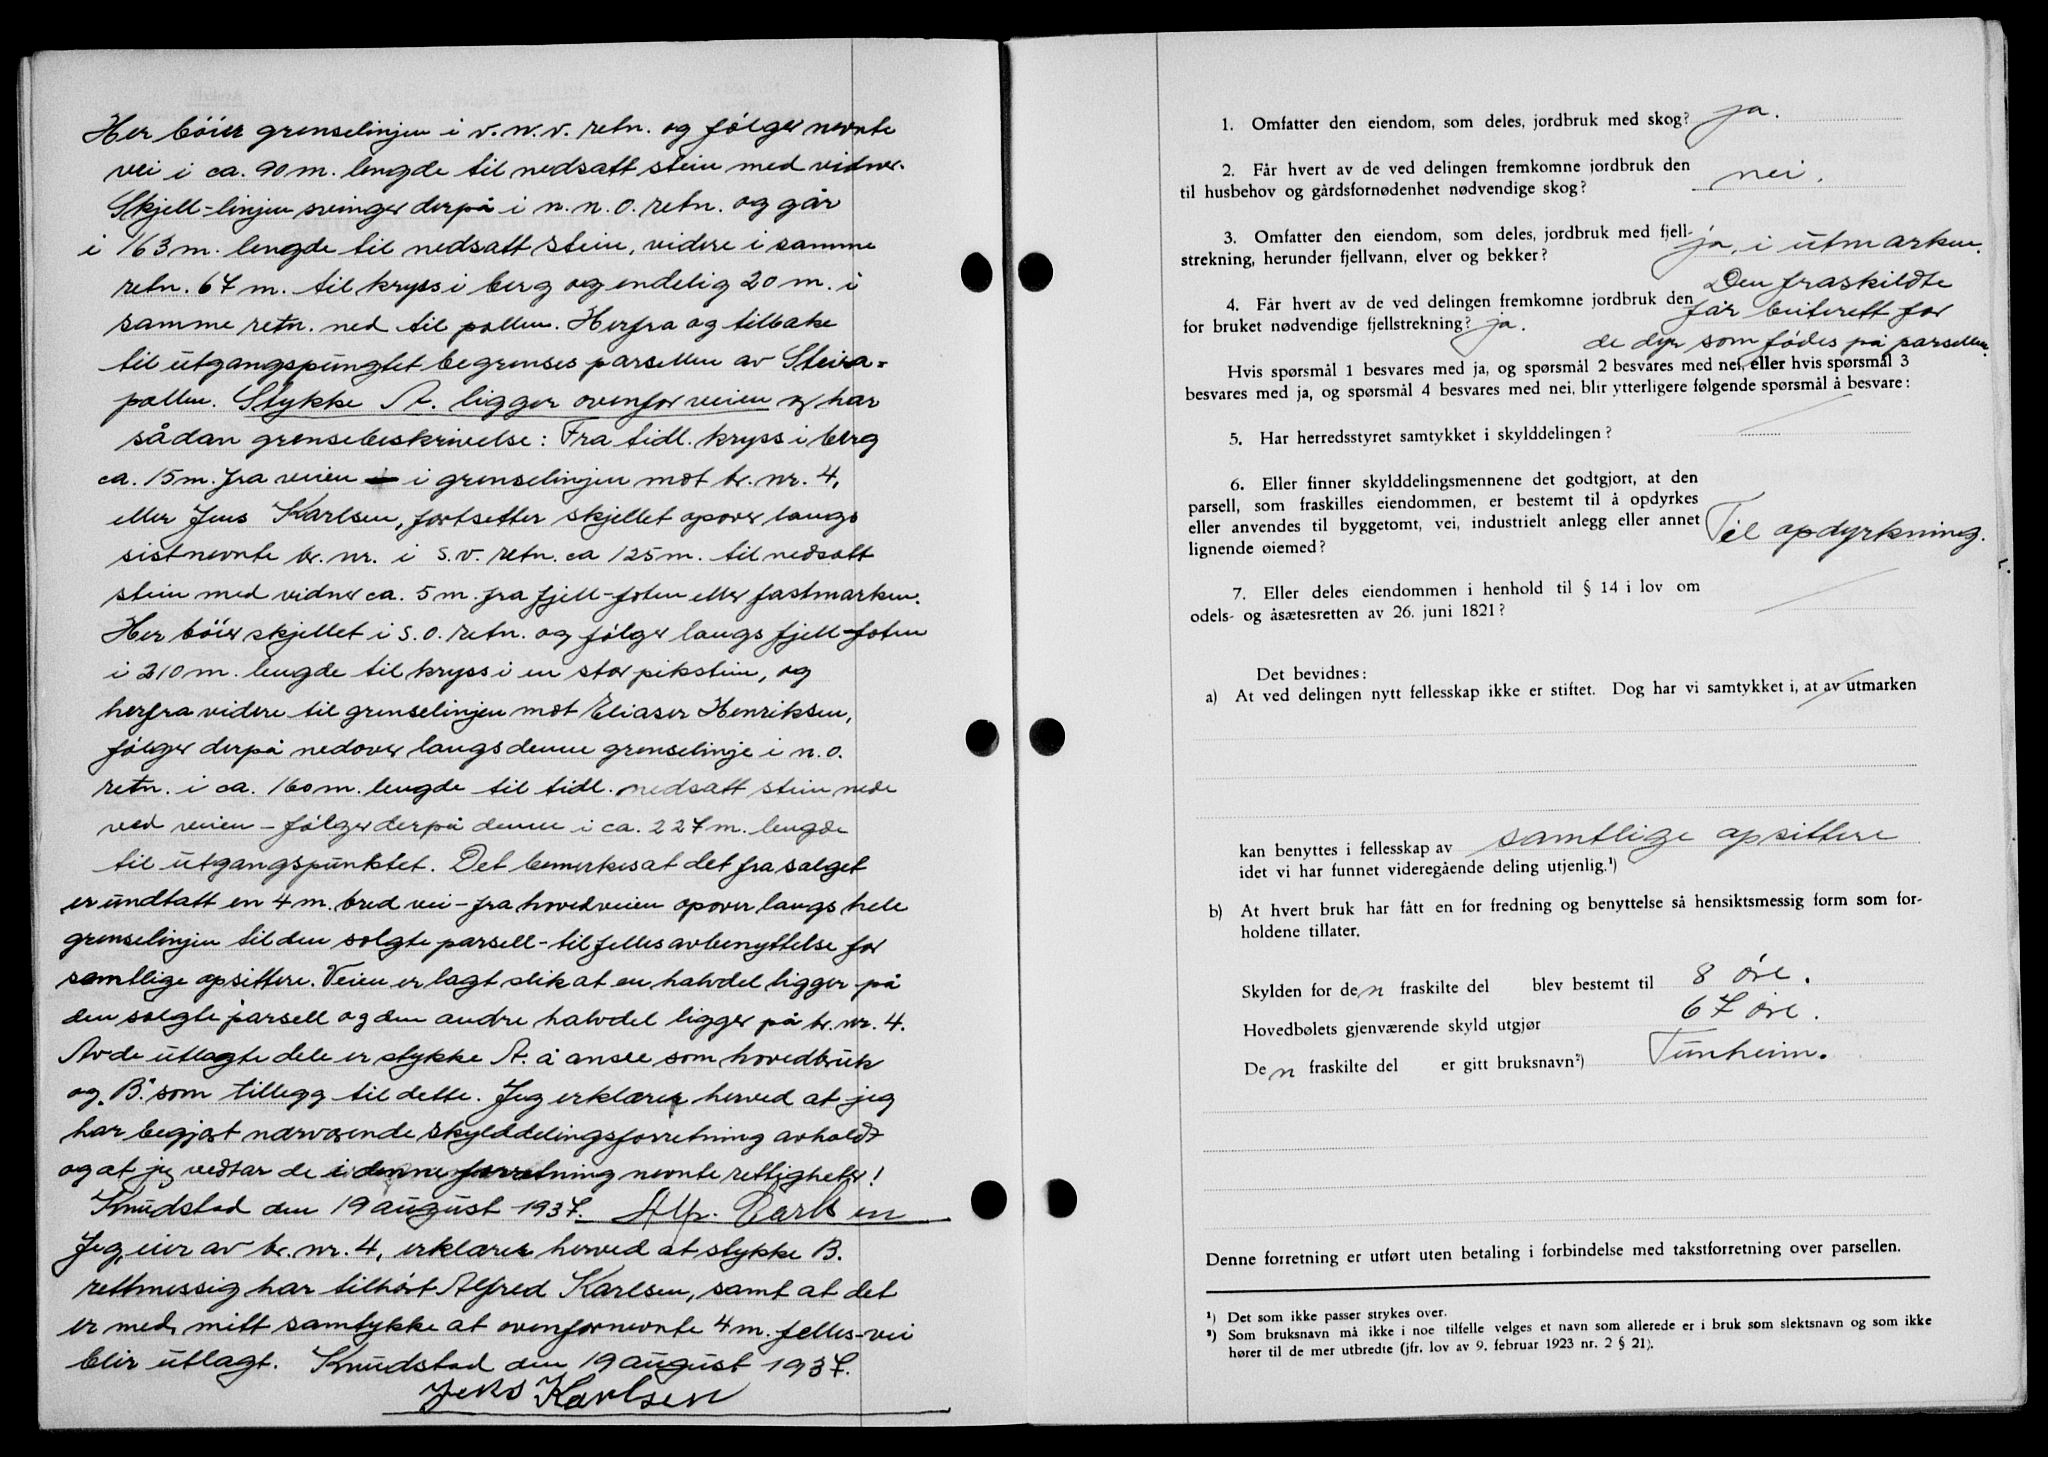 Her böier grenselinjen i v.n.v. retn. og følger nevnte
vei i ca. 90 m. lengde til nedsatt stein med vidner.
Skjell-linjen svinger derpå i n.n.o. retn. og går
i 163 m. lengde til nedsatt stein, videre i samme
retn. 67 m. til kryss i berg og endelig 20 m. i
samme retn. ned til pollen. Herfra og tilbake
til utgangspungtet begrenses parsellen av Steira-
pollen. Stykke A. ligger ovenfor veien og har
sådan grensebeskrivelse: Fra tidl. kryss i berg
ca. 15 m. fra veien i grenselinjen mot br. nr. 4,
eller Jens Karlsen, fortsetter skjellet opover langs
sistnevnte br. nr. i s.v. retn. ca 125 m. til nedsatt
stein med vidner ca. 5 m. fra fjell-foten eller fastmarken.
Her böier skjellet i s.o. retn. og følger langs fjell-foten
i 210 m. lengde til kryss i en stor pikstein, og
herfra videre til grenselinjen mot Eliaser Henriksen,
følger derpå nedover langs denne grenselinje i n.o.
retn. i ca. 160 m. lengde til tidl. nedsatt stein nede
ved veien - følger derpå denne i ca. 227 m. lengde
til utgangspunktet. Det bemerkes at det fra salget
er undtatt en 4 m. bred vei - fra hovedveien opover langs hele
grenselinjen til den solgte parsell - til felles avbenyttelse for
samtlige opsittere. Veien er lagt slik at en halvdel ligger på
den solgte parsell og den andre halvdel ligger på br. nr. 4.
Av de utlagte dele er stykke A. å ansee som hovedbruk
og "B." som tillegg til dette. Jeg erklærer herved at jeg
har begjært nærværende skylddelingsforretning avholdt
og at jeg vedtar de i denne forretning nevnte rettigheter!
Knudstad den 19 august 1937. Alf. Carlsen
Jeg, eier av br. nr. 4, erklærer herved at stykke B.
rettmessig har tilhørt Alfred Karlsen, samt at det
er med mitt samtykke at ovenfornevnte 4 m. felles-vei
blir utlagt. Knudstad den 19 august 1937.
Jens Karlsen
1. Omfatter den eiendom, som deles, jordbruk med skog? ja.
2. Får hvert av de ved delingen fremkomne jordbruk den
til husbehov og gårdsfornødenhet nødvendige skog? nei.
3. Omfatter den eiendom, som deles, jordbruk med fjell-
strekning, herunder fjellvann, elver og bekker? ja, i utmarken.
Den fraskildte
4. Får hvert av de ved delingen fremkomne jordbruk den får beiterett for
for bruket nødvendige fjellstrekning? ja.
de dyr som fødes på parsellen.
Hvis spørsmål 1 besvares med ja, og spørsmål 2 besvares med nei, eller hvis spørsmål 3
besvares med ja, og spørsmål 4 besvares med nei, blir ytterligere følgende spørsmål å besvare:
5. Har herredsstyret samtykket i skylddelingen?
6. Eller finner skylddelingsmennene det godtgjort, at den
parsell, som fraskilles eiendommen, er bestemt til å opdyrkes
eller anvendes til byggetomt, vei, industrielt anlegg eller annet
lignende øiemed? Til opdyrkning.
7. Eller deles eiendommen i henhold til § 14 i lov om
odels- og åsætesretten av 26. juni 1821?
Det bevidnes:
a) At ved delingen nytt fellesskap ikke er stiftet. Dog har vi samtykket i, at av utmarken
kan benyttes i fellesskap av samtlige opsittere
idet vi har funnet videregående deling utjenlig.¹)
b) At hvert bruk har fått en for fredning og benyttelse så hensiktsmessig form som for-
holdene tillater.
Skylden for den fraskilte del blev bestemt til 8 øre.
Hovedbølets gjenværende skyld utgjør 67 øre.
Den fraskilte del er gitt bruksnavn²) Tunheim.
Denne forretning er utført uten betaling i forbindelse med takstforretning over parsellen.
¹) Det som ikke passer strykes over.
²) Som bruksnavn må ikke i noe tilfelle velges et navn som allerede er i bruk som slektsnavn og som ikke
hører til de mer utbredte (jfr. lov av 9. februar 1923 nr. 2 § 21).